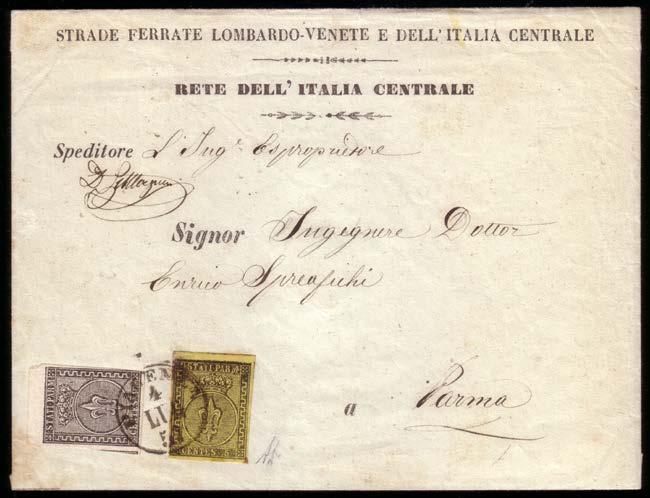 STRADE FERRATE LOMBARDO-VENETE E DELL'ITALIA CENTRALE
RETE DELL'ITALIA CENTRALE
Speditore L'Ingr Espropriatore
Signor Ingegnere Dottor
Enrico Spreafichi
a Parma
STATI PARM
STATI PARM
CENTES. 5
4
LU